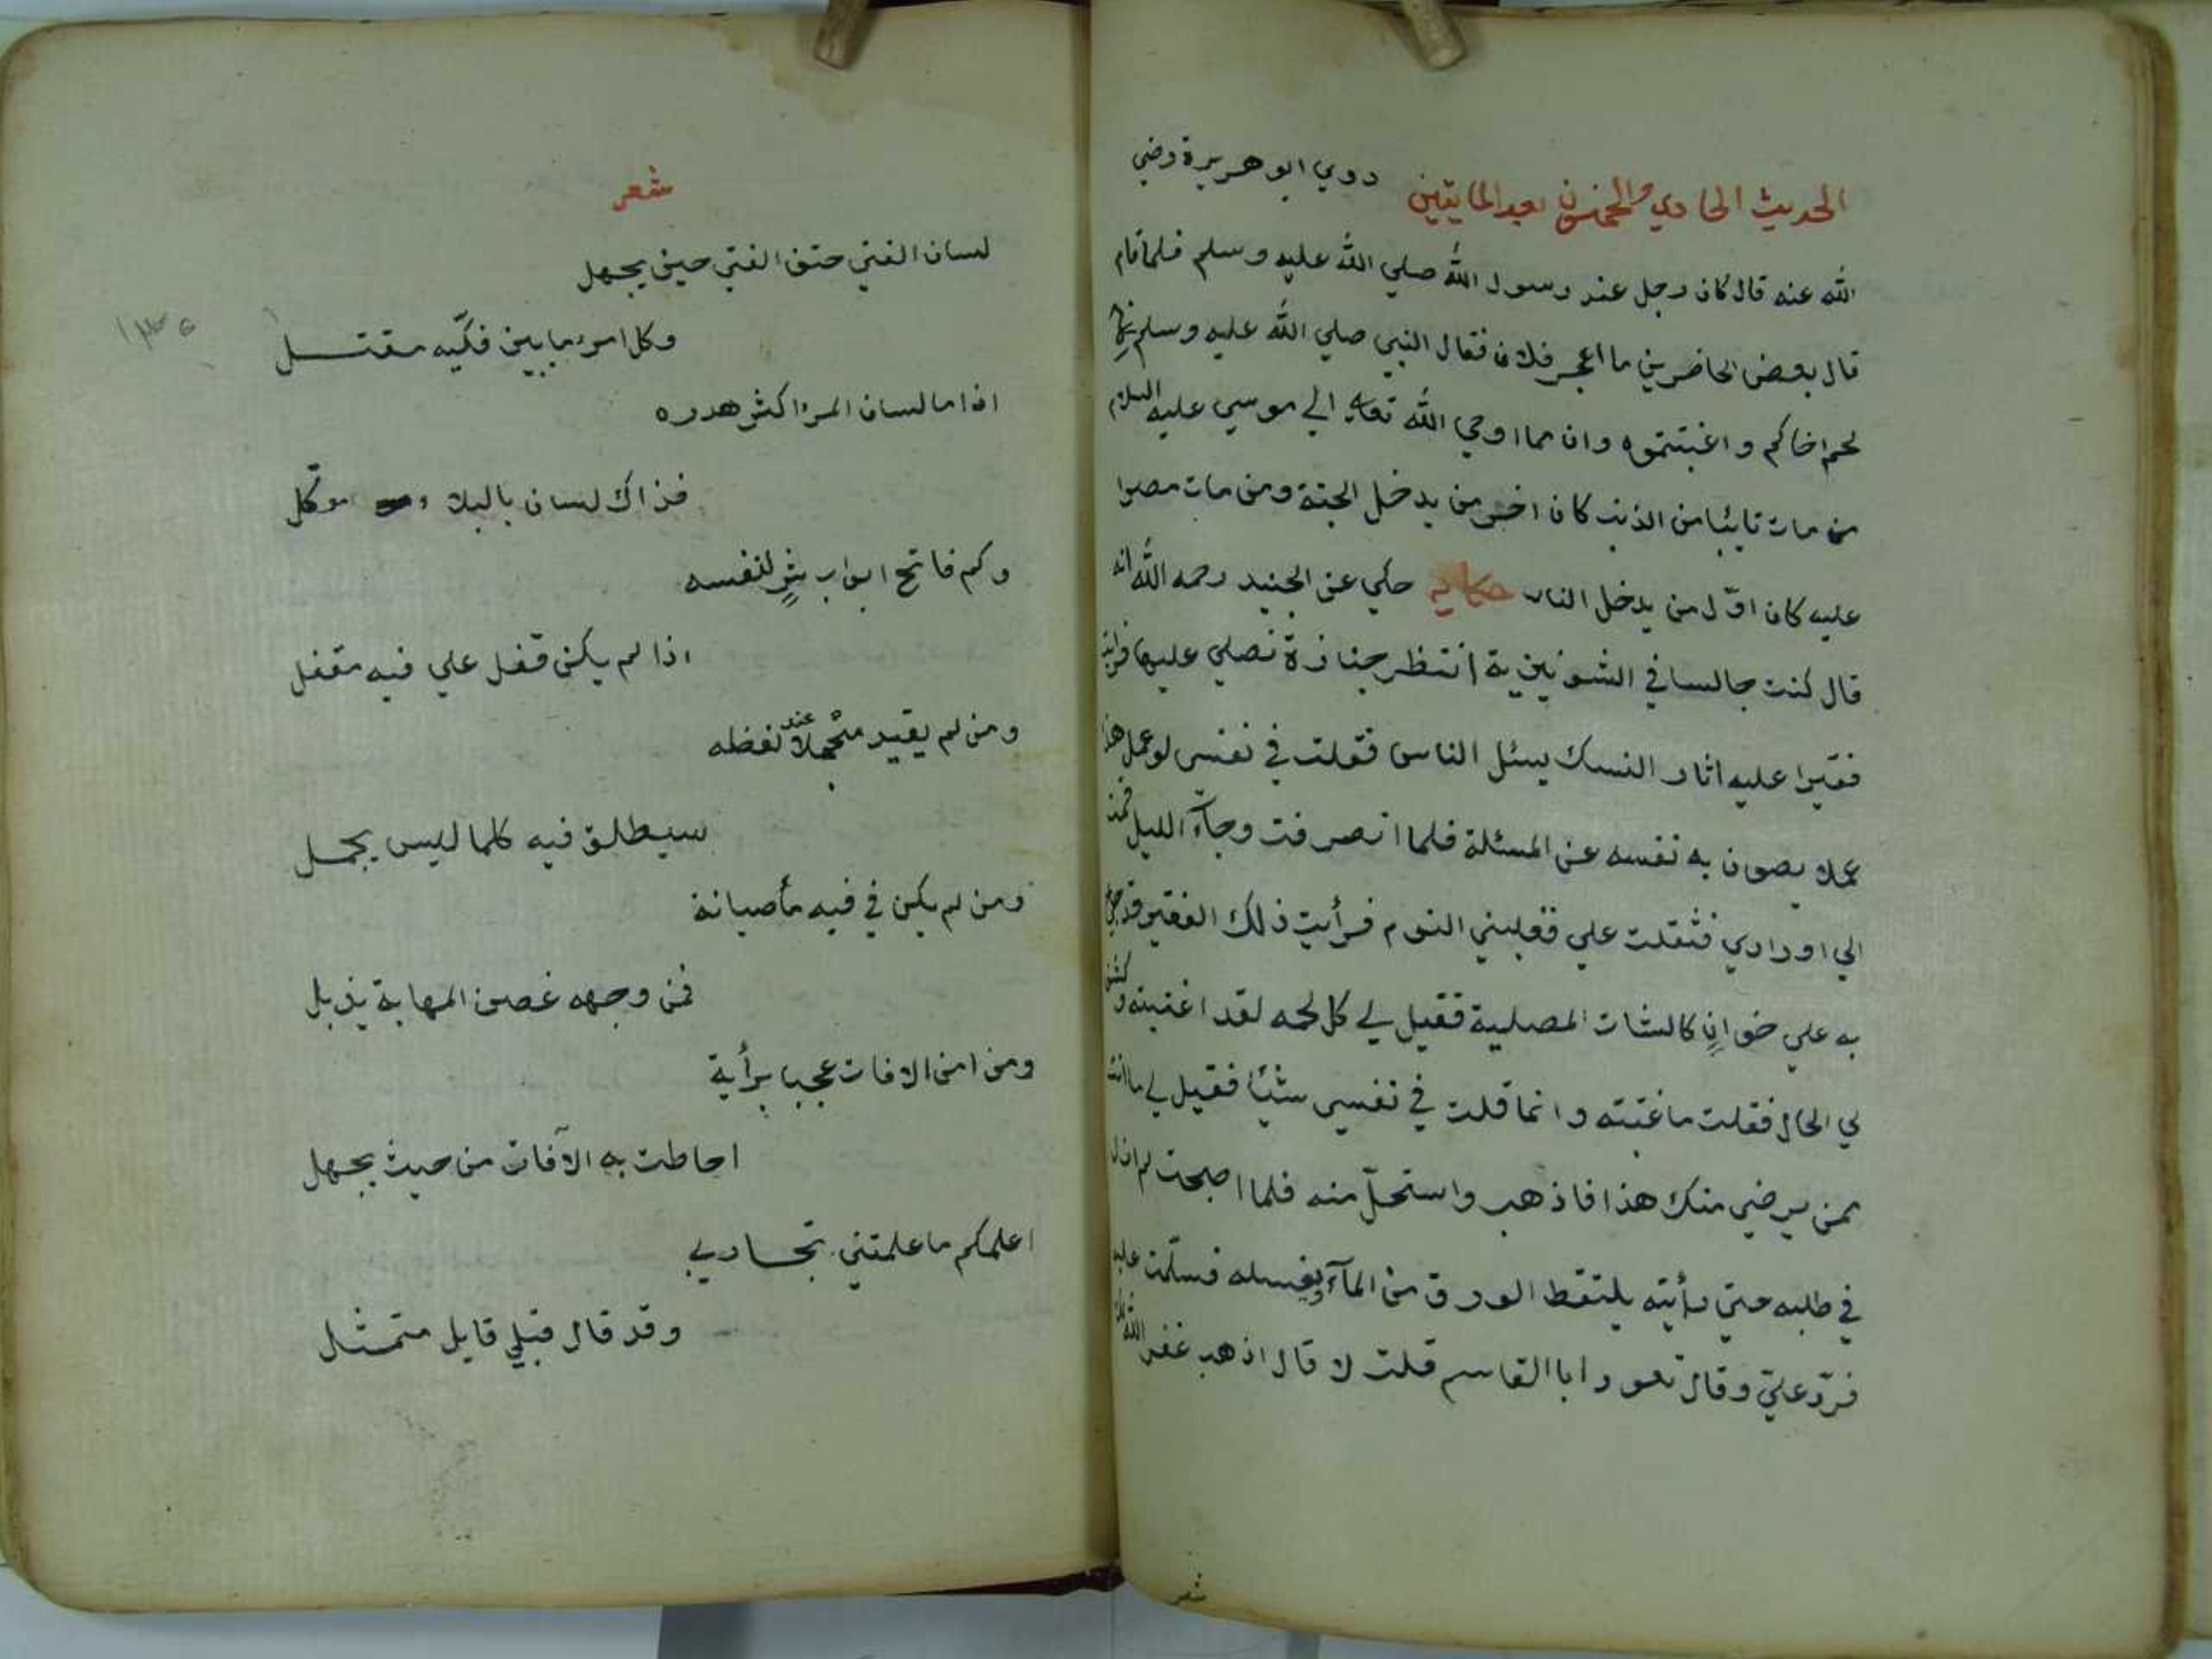 الحديث الحادي والخمسون بعد المايتين روي ابو هريرة رضي
الله عنه قال كان رجل عند رسول الله صلي الله عليه وسلم فلما قام
قال بعض الحاضرين ما اعجز فلانا فقال النبي صلي الله عليه وسلم
لحم اخاكم واغتبتموه وان مما اوحي الله تعالي الي موسي عليه السلام
من مات تايبا من الذنب كان اخر من يدخل الجنة ومن مات مصرا
عليه كان اوّل من يدخل النار حكاية حكي عن الجنيد رحمه الله انه
قال كنت جالسا في الشونيزية انتظر جنازة نصلي عليها فرايت
فقيرا عليه اثار النسك يسئل الناس فقلت في نفسي لو عمل هذا
عملا يصون به نفسه عن المسئلة فلما انصرفت وجآء الليل قمت
الي اورادي فثقلت علي فغلبني النوم فرأيت ذلك الفقير قد جئ
به علي خوانٍ كالشات المصلية فقيل لي كل لحمه لقد اغتبته وكشف
لي الحال فقلت ما غبته وانما قلت في نفسي شيئا فقيل لي ما انت
ممن يرضي منك هذا فاذهب واستحلّ منه فلما اصبحت لم ازل
في طلبه حتي رأيته يلتقط الورق من المآء ويغسله فسلّمت عليه
فردّ عليّ وقال تعود ابا القاسم قلت لا قال اذهب غفر الله لك
شعر
شعر
لسان الفتي حتف الفتي حين يجهل
وكل امرء ما بين فكّيه مقتل
اذا ما لسان المرء اكثر هدره
فذاك لسان بالبلاء موكّل
وكم فاتح ابواب شرٍ لنفسه
اذا لم يكن قفل علي فيه مقفل
ومن لم يقيد متجملا عند لفظه
سيطلق فيه كلما ليس يجمل
ومن لم يكن في فيه مأصيانة
فمن وجهه غصن المهابة يذبل
ومن امن الافات عجبا برأية
احاطت به الآفات من حيث يجهل
اعلمكم ما علمتني تجاربي
وقد قال قبلي قايل متمثل
١٣٥